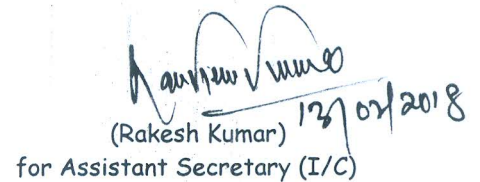 13/02/2018
(Rakesh Kumar)
for Assistant Secretary (I/C)